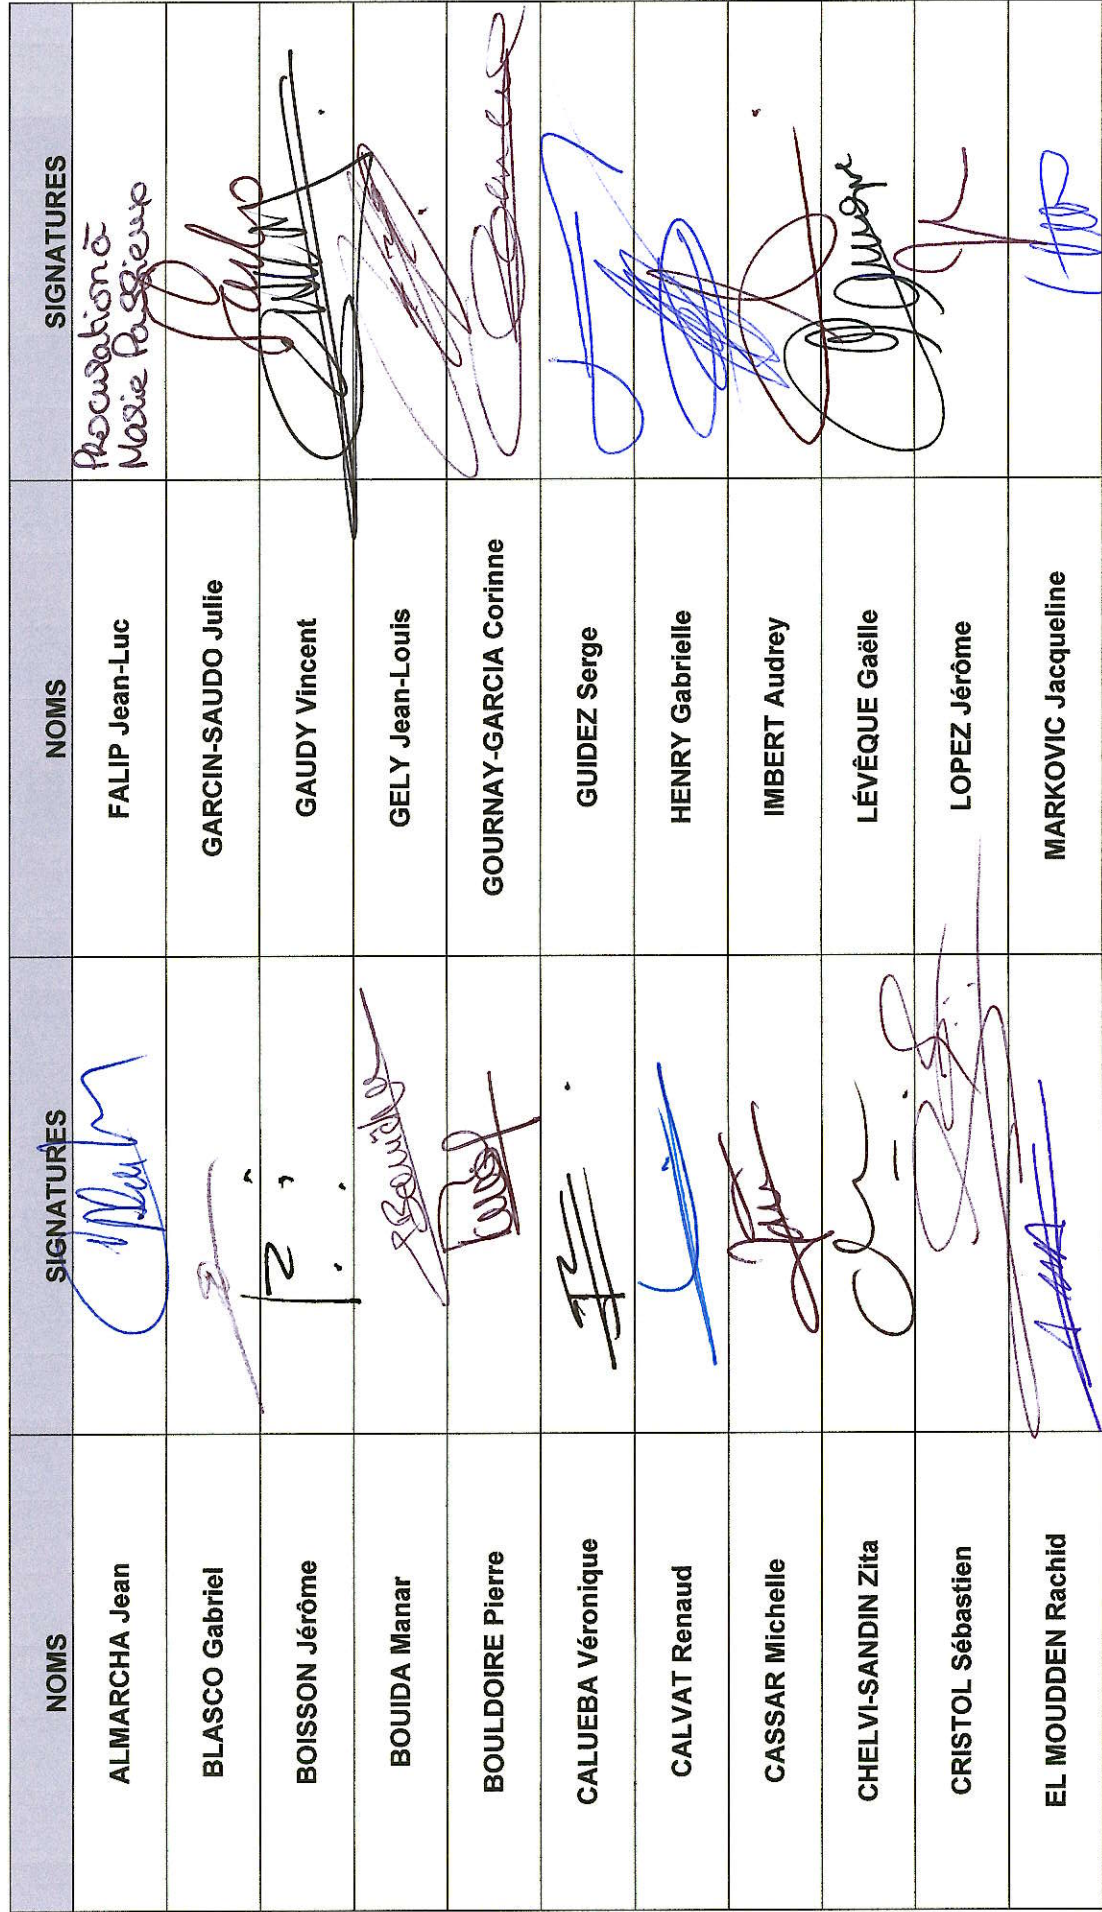 NOMS SIGNATURES NOMS SIGNATURES
ALMARCHA Jean FALIP Jean-Luc Procuration à
Marie Passieux
BLASCO Gabriel GARCIN-SAUDO Julie
BOISSON Jérôme GAUDY Vincent
BOUIDA Manar GELY Jean-Louis
BOULDOIRE Pierre GOURNAY-GARCIA Corinne
CALUEBA Véronique GUIDEZ Serge
CALVAT Renaud HENRY Gabrielle
CASSAR Michelle IMBERT Audrey
CHELVI-SANDIN Zita LÉVÊQUE Gaëlle
CRISTOL Sébastien LOPEZ Jérôme
EL MOUDDEN Rachid MARKOVIC Jacqueline